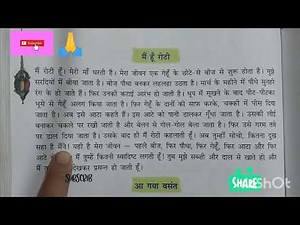 मैं हूँ रोटी
मैं रोटी हूँ। मेरी माँ धरती है। मेरा जीवन एक गेहूँ के छोटे-से बीज से शुरू होता है। मुझे
सरदियों में बोया जाता है। बीज पौधा बनकर लहलहा उठता है। मार्च के महीने में पौधे सुनहरे
रंग के हो जाते हैं। फिर उनकी कटाई आरंभ हो जाती है। धूप में सूखने के बाद पीट-पीटकर
भूसे से गेहूँ अलग किया जाता है। फिर गेहूँ के दानों को साफ़ करके, चक्की में पीस दिया
जाता है। अब इसे आटा कहते हैं। इसके आटे को पानी डालकर गूँधा जाता है। उसकी लोई
बनाकर चकले पर रखी जाती है और बेलन से गोल-गोल बेला जाता है। फिर उसे गरम तवे
पर डाल दिया जाता है। उसके बाद ही मैं रोटी कहलाती हूँ। अब तुम्हीं सोचो, कितना दुख
सहा है मैंने! यही है मेरा जीवन – पहले बीज, फिर पौधा, फिर गेहूँ, फिर आटा और फिर
मैं तुम्हें कितनी स्वादिष्ट लगती हूँ! तुम मुझे सब्ज़ी और दाल से खाते हो और
देखकर प्रसन्न हो जाती हूँ।
SUBSCRIBE
SHARE
आ गया वसंत